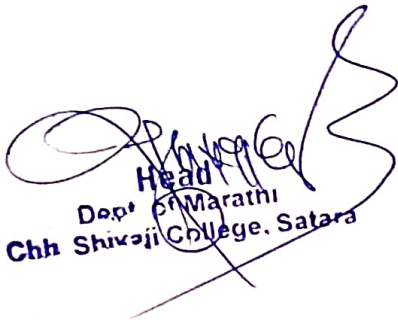 Head
Dept of Marathi
Chh Shivaji College, Satara